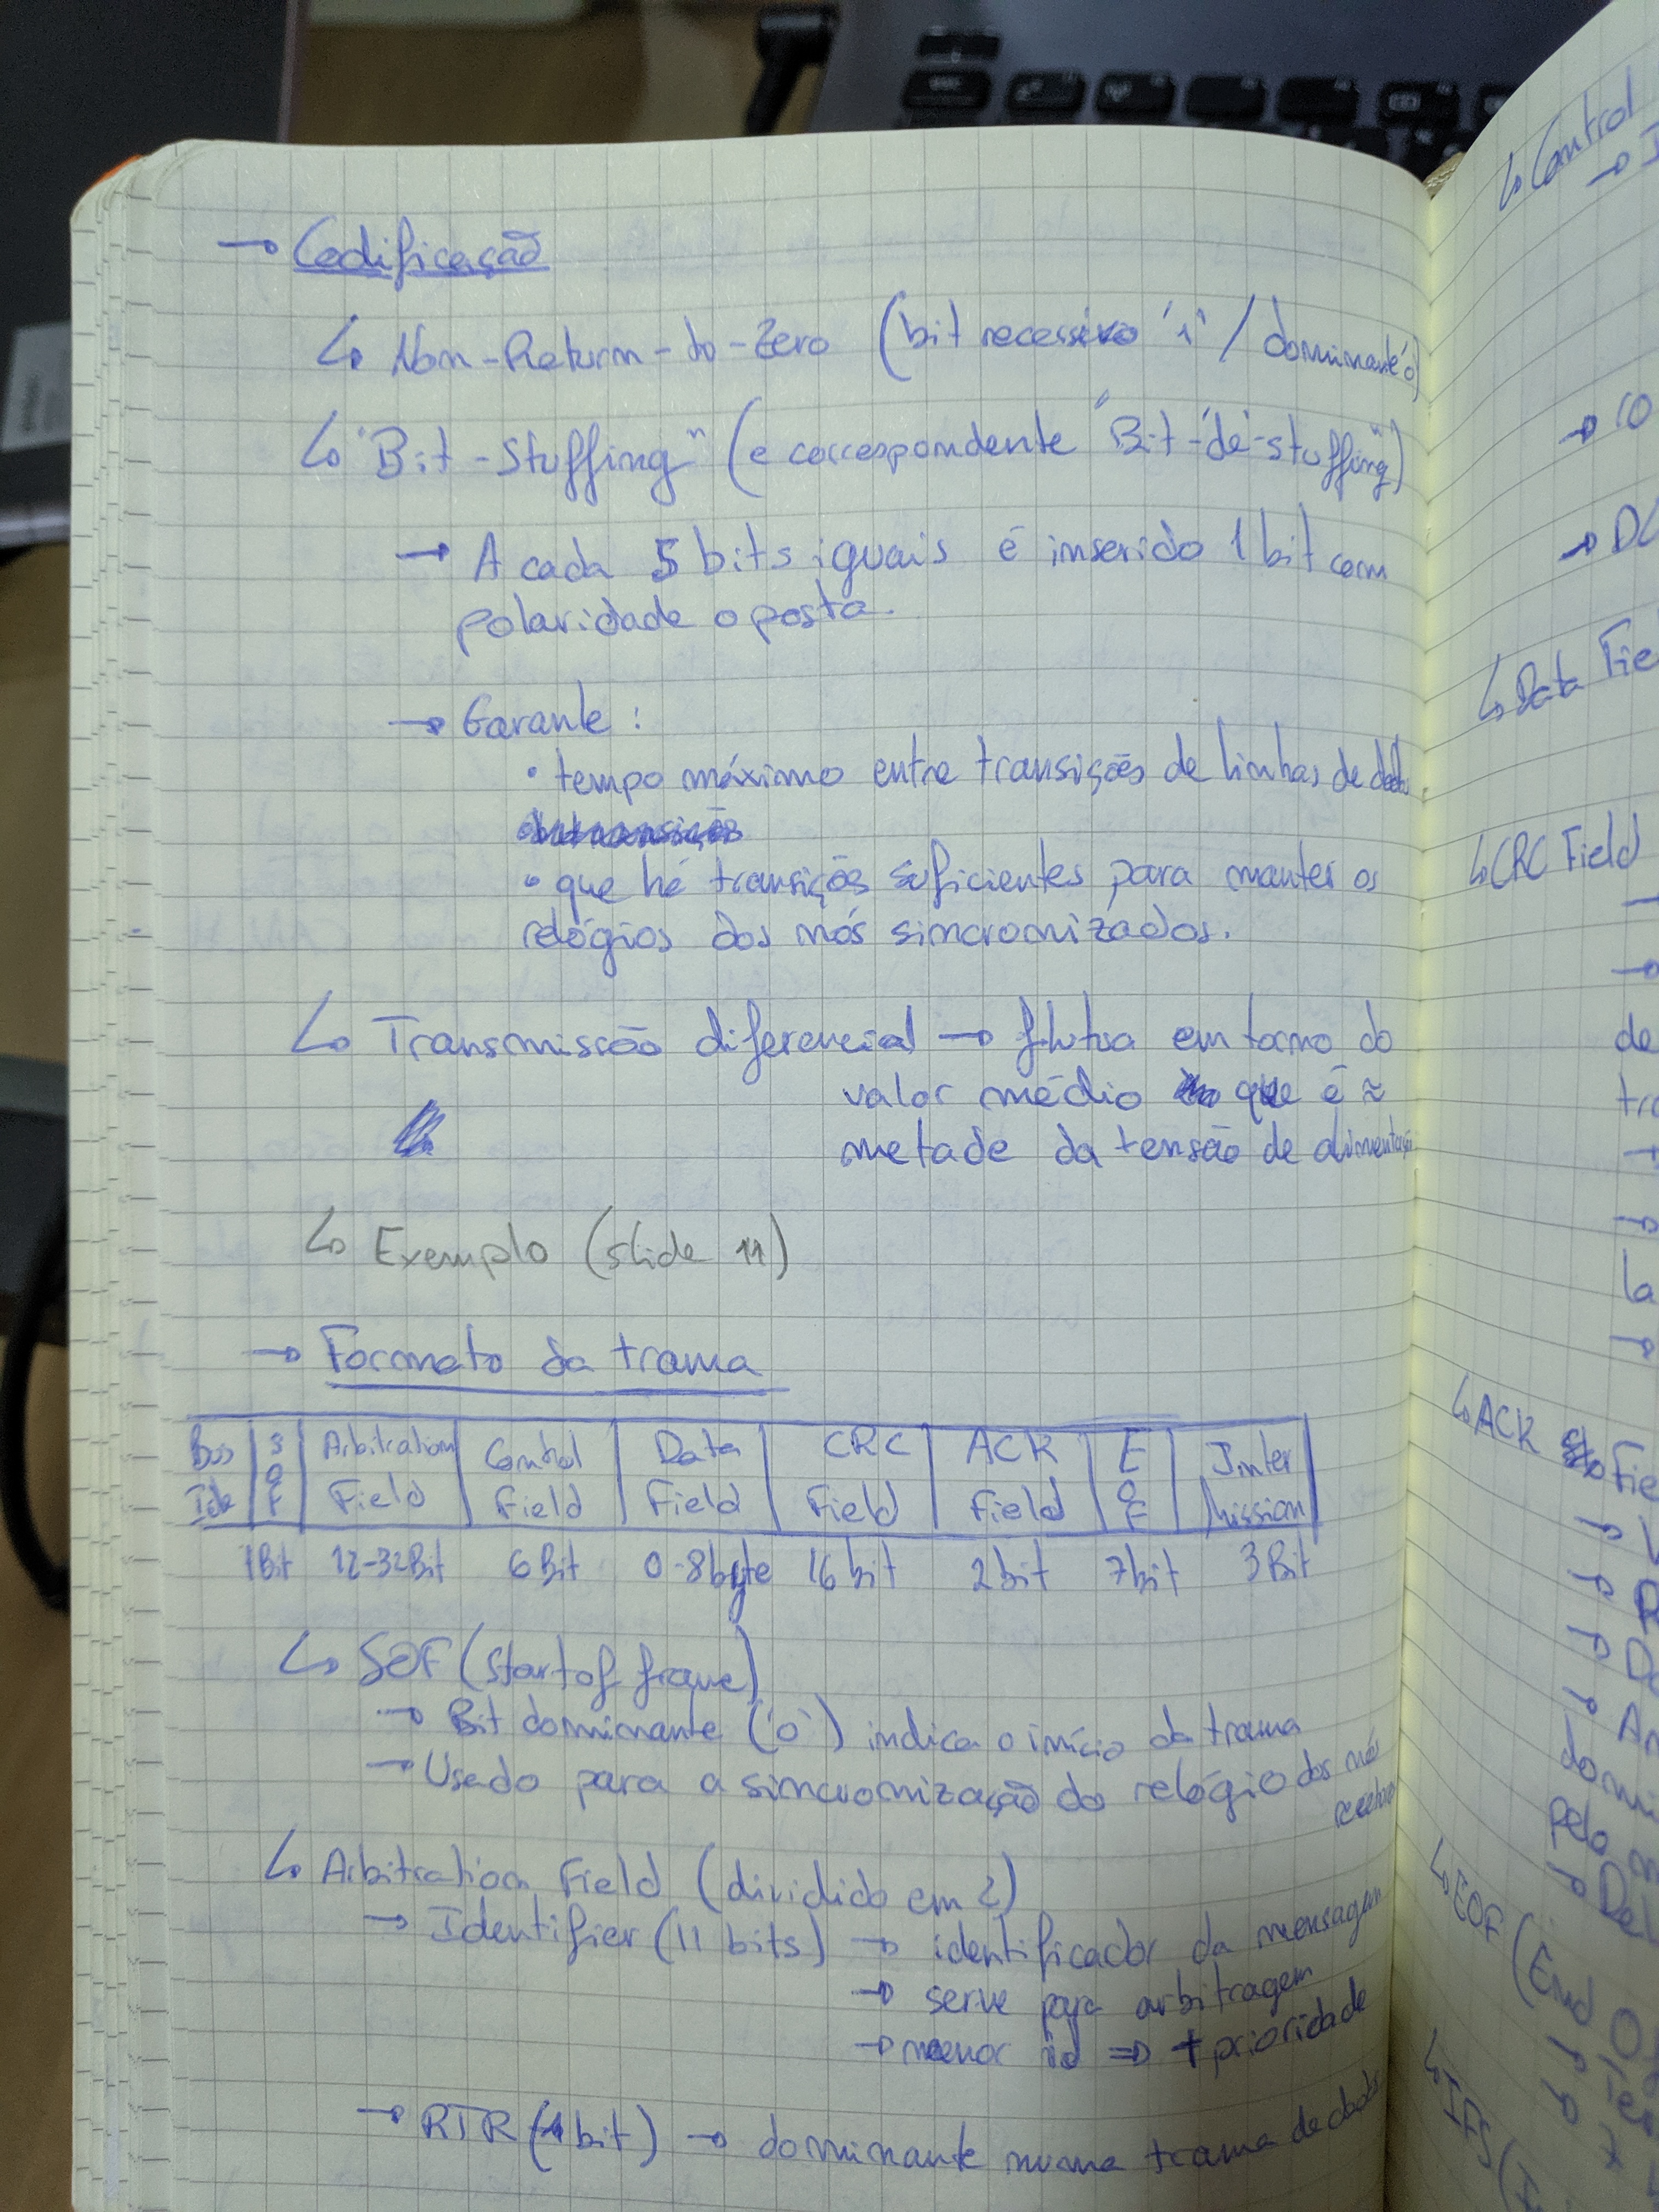 → Codificação
↳ Non-Return-to-Zero (bit recessivo '1' / dominante '0')
↳ "Bit-Stuffing" (e correspondente "Bit-de-stuffing")
→ A cada 5 bits iguais é inserido 1 bit com
polaridade oposta.
→ Garante:
• tempo máximo entre transições de linhas de dados
• que há transições suficientes para manter os
relógios dos nós sincronizados.
↳ Transmissão diferencial → flutua em torno do
valor médio que é ≈
metade da tensão de alimentação
↳ Exemplo (slide 11)
→ Formato da trama
Bus Idle | SOF | Arbitration Field | Control Field | Data Field | CRC Field | ACK Field | EOF | Inter mission
1Bit 12-32Bit 6Bit 0-8byte 16bit 2bit 7bit 3Bit
↳ SOF (start of frame)
→ Bit dominante ('0') indica o início da trama
→ Usado para a sincronização do relógio dos nós
↳ Arbitration Field (dividido em 2)
→ Identifier (11 bits) → identificador da mensagem
→ serve para arbitragem
→ menor id ⇒ + prioridade
→ RTR (1 bit) → dominante numa trama de dados
↳ Control
→ DL
↳ Data Fie
↳ CRC Field
de
la
↳ ACK Fie
domi
pelo
→ Del
↳ EOF (End O
↳ IFS (I